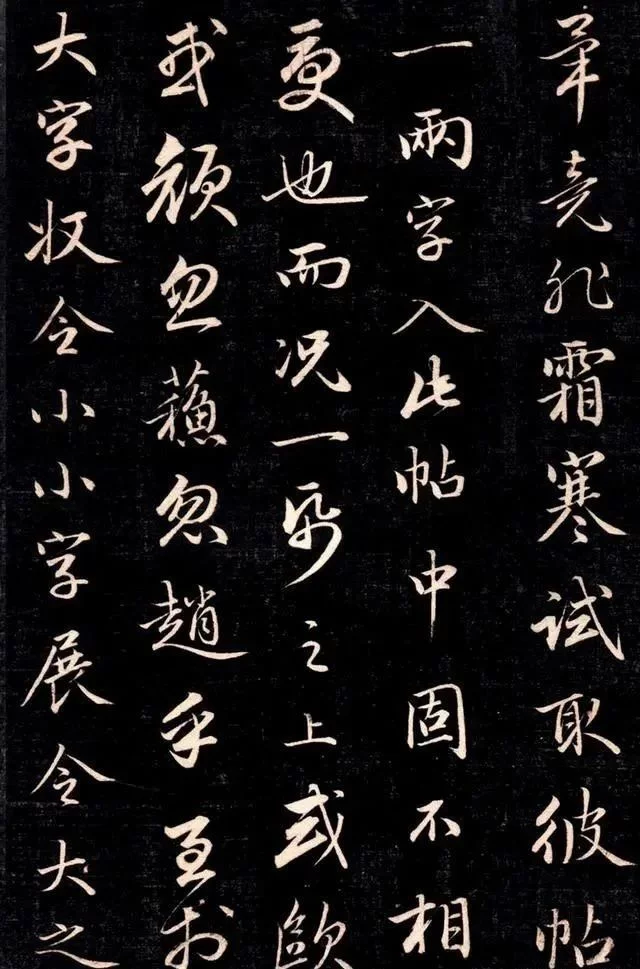 畢竟非霜寒試取彼帖
一兩字入此帖中固不相
更也而况一帋之上或歐
或顔忽蘓忽趙乎至於
大字收令小小字展令大之